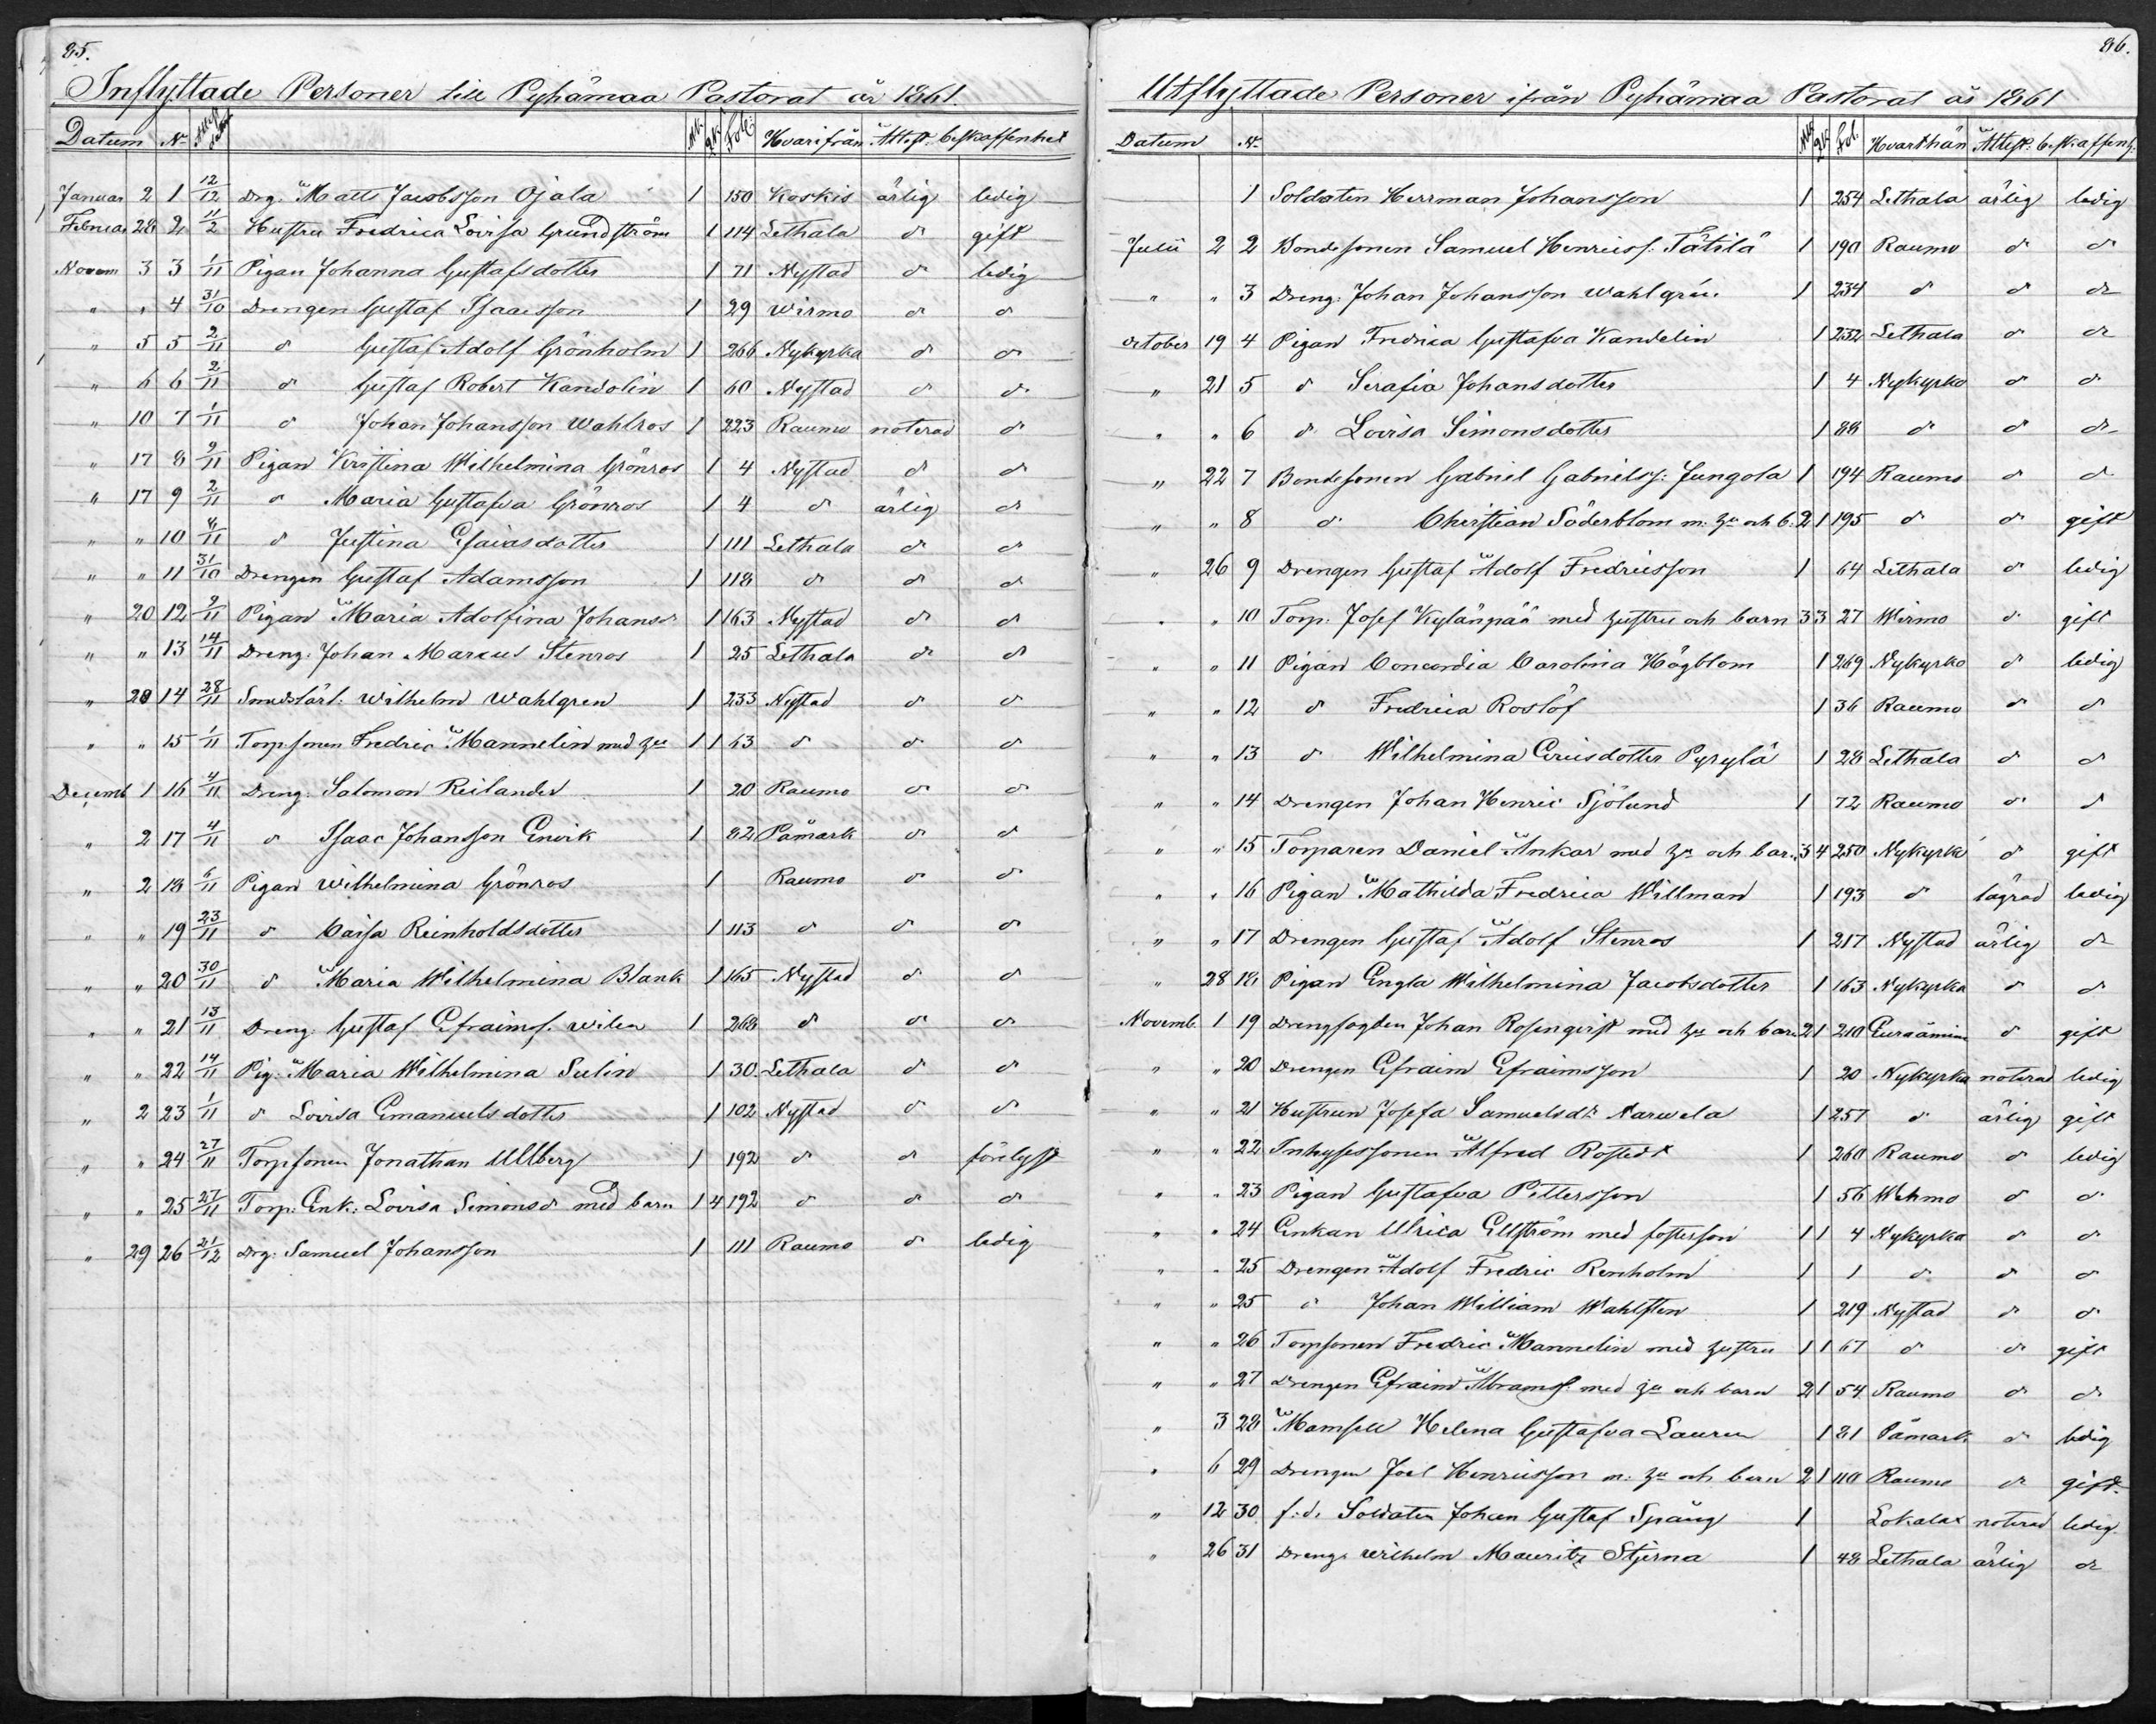 85.
Inflyttade Personer till Pyhämaa Pastorat år 1861.
Datum N. Mk. Qk. Fol: Hvarifrån Attest. beskaffenhet
Januar 2 1 12/12 Drg. Matts Jacobsson Ojala 1 150 Koskis ärlig ledig
Februar 28 2 11/2 Hustru Fredrica Lovisa Grundström 1 114 Lethala d:o gift
Novem 3 3 1/11 Pigan Johanna Gustafsdotter 1 71 Nystad d:o ledig
" " 4 31/10 Drengen Gustaf Isaacsson 1 29 Wirmo d:o d:o
" 5 5 2/11 d:o Gustaf Adolf Grönholm 1 266 Nykyrka d:o d:o
" 6 6 2/11 d:o Gustaf Robert Kandolin 1 60 Nystad d:o d:o
" 10 7 1/11 d:o Johan Johansson Wahlros 1 223 Raumo noterad d:o
" 17 8 2/11 Pigan Kristina Wilhelmina Grönros 1 4 Nystad d:o d:o
" 17 9 2/11 d:o Maria Gustafva Grönros 1 4 d:o ärlig d:o
" " 10 8/11 d:o Justina Esaiasdotter 1 111 Lethala d:o d:o
" " 11 31/10 Drengen Gustaf Adamsson 1 118 d:o d:o d:o
" 20 12 9/11 Pigan Maria Adolfina Johansd 1 163 Nystad d:o d:o
" " 13 14/11 Dreng. Johan Marcus Stenros 1 25 Lethala d:o d:o
" 28 14 28/11 Smedslärl. Wilhelm Wahlgren 1 233 Nystad d:o d:o
" " 15 1/11 Torpsonen Fredric Mannelin med hu 1 1 63 d:o d:o d:o
Decemb 1 16 4/11 Dreng. Salomon Reilander 1 20 Raumo d:o d:o
" 2 17 4/11 d:o Isaac Johansson Envik 1 82 Påmark d:o d:o
" 2 18 6/11 Pigan Wilhelmina Grönros 1 Raumo d:o d:o
" " 19 23/11 d:o Caisa Reinholdsdotter 1 113 d:o d:o d:o
" " 20 30/11 d:o Maria Wilhelmina Blank 1 165 Nystad d:o d:o
" " 21 13/11 Dreng. Gustaf Efraims. Wilen 1 268 d:o d:o d:o
" " 22 14/11 Pig. Maria Wilhelmina Sulin 1 30 Lethala d:o d:o
" 2 23 1/11 d:o Lovisa Emanuelsdotter 1 102 Nystad d:o d:o
" " 24 27/11 Torpsonen Jonathan Ullberg 1 192 d:o d:o förelyst
" " 25 27/11 Torp. Enk. Lovisa Simonsd med barn 1 4 192 d:o d:o d:o
" 29 26 21/12 Drg. Samuel Johansson 1 111 Raumo d:o ledig
86.
Utflyttade Personer ifrån Pyhämaa Pastorat år 1861
Datum N. Mk Qk Fol. Hvarthän Attest. beskaffenh.
1 Soldaten Herrman Johansson 1 254 Lethala ärlig ledig
Julii 2 2 Bondesonen Samuel Henricss. Tätilä 1 190 Raumo d:o d:o
" " 3 Dreng. Johan Johansson Wahlgrén. 1 234 d:o d:o d:o
October 19 4 Pigan Fredrica Gustafva Kandelin 1 232 Lethala d:o d:o
" 21 5 d:o Serafia Johansdotter 1 4 Nykyrko d:o d:o
" " 6 d:o Lovisa Simonsdotter 1 88 d:o d:o d:o
" 22 7 Bondesonen Gabriel Gabrielss. Jungola 1 194 Raumo d:o d:o
" " 8 d:o Christian Söderblom m. hu och b. 2 1 195 d:o d:o gift
" 26 9 Drengen Gustaf Adolf Fredricsson 1 64 Lethala d:o ledig
" " 10 Torp. Josef Kylänpää med hustru och barn 3 3 27 Wirmo d:o gift
" " 11 Pigan Concordia Carolina Högblom 1 269 Nykyrko d:o ledig
" " 12 d:o Fredrica Roslöf 1 36 Raumo d:o d:o
" " 13 d:o Wilhelmina Ericsdotter Pyrylä 1 28 Lethala d:o d:o
" " 14 Drengen Johan Henric Sjölund 1 72 Raumo d:o d:o
" " 15 Torparen Daniel Ankar med hu och bar. 3 4 250 Nykyrk d:o gift
" " 16 Pigan Mathilda Fredrica Willman 1 193 d:o lägrad ledig
" " 17 Drengen Gustaf Adolf Stenros 1 217 Nystad ärlig d:o
" 28 18 Pigan Engla Wilhelmina Jacobsdotter 1 163 Nykyrka d:o d:o
Novemb. 1 19 Drengfogden Johan Rosenqvist med hu och barn 2 1 210 Euraåminne d:o gift
" " 20 Drengen Efraim Efraimsson 1 20 Nykyrka noterad ledig
" " 21 Hustrun Josefa Samuelsdr Narwela 1 257 d:o ärlig gift
" " 22 Inhysessonen Alfred Rostedt 1 260 Raumo d:o ledig
" " 23 Pigan Gustafva Pettersson 1 56 Wehmo d:o d:o
" " 24 Enkan Ulrica Ellström med fosterson 1 1 4 Nykyrka d:o d:o
" " 25 Drengen Adolf Fredric Renholm 1 1 d:o d:o d:o
" " 25 d:o Johan William Wahlsten 1 219 Nystad d:o d:o
" " 26 Torpsonen Fredric Mannelin med hustru 1 1 67 d:o d:o gift
" " 27 Drengen Efraim Abrams. med hu och barn 2 1 54 Raumo d:o d:o
" 3 28 Mamsell Helena Gustafva Lauren 1 81 Påmark d:o ledig
" 6 29 Drengen Joel Henricsson m. hu och barn 2 1 110 Raumo d:o gift
" 12 30 f.d. Soldaten Johan Gustaf Spång 1 Lokalax noterad ledig
" 26 31 Dreng. Wilhelm Mauritz Stjerna 1 48 Lethala ärlig d:o